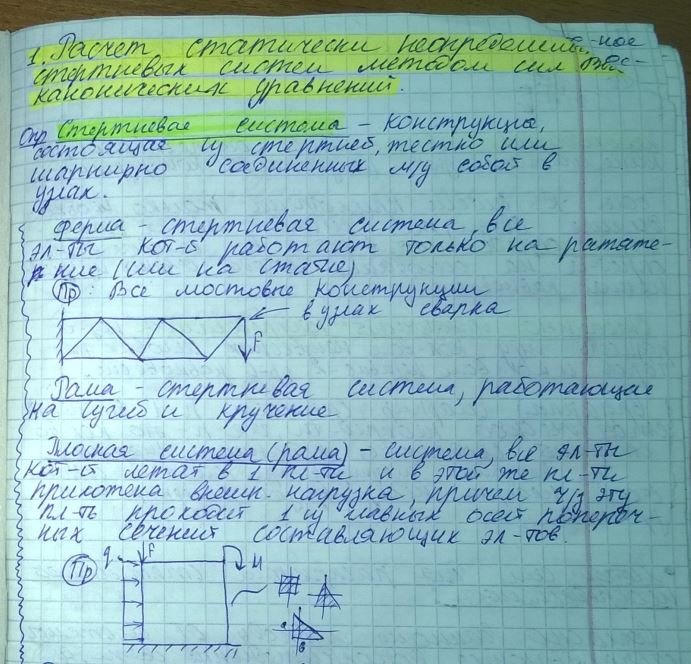 1. Расчет статически неопределимы
стержневых систем методом сил
канонических уравнений.
Опр Стержневая система – конструкция,
состоящая из стержней, жестко или
шарнирно соединенных м/у собой в
узлах.
Ферма – стержневая система, все
эл-ты кот-й работают только на растяже-
ние (или на сжатие)
Пр: Все мостовые конструкции
в узлах сварка
F
Рама – стержневая система, работающая
на изгиб и кручение
Плоская система (рама) – система, все эл-ты
кот-й лежат в 1 пл-ти и в этой же пл-ти
приложена внешн. нагрузка, причем ч/з эту
пл-ть проходит 1 из главных осей попереч-
ных сечений составляющих эл-тов.
Пр q F M
a
b